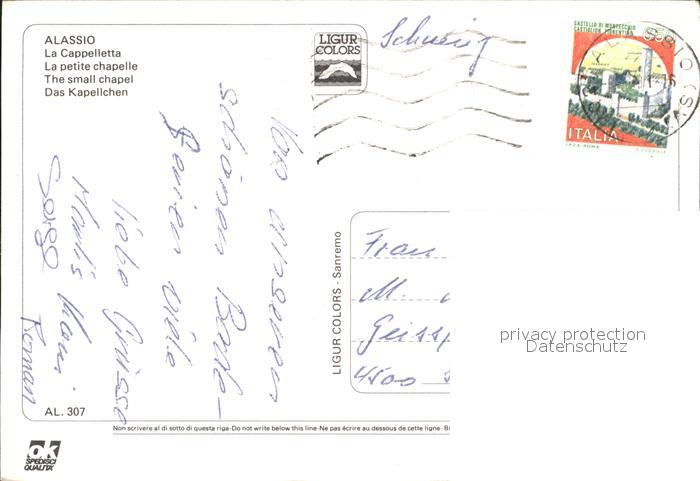 ALASSIO
La Cappelletta
La petite chapelle
The small chapel
Das Kapellchen
LIGUR
COLORS
Schweiz
CASTELLO DI MONTECCHIO
CASTIGLION FIORENTINO
ITALIA
Von unseren
schönen Bade-
ferien viele
liebe Grüsse
Roman
AL. 307
LIGUR COLORS - Sanremo
Frau
M.
4500
privacy protection
Datenschutz
Non scrivere al di sotto di questa riga-Do not write below this line-Ne pas écrire au dessous de cette ligne-
ok
SPEDISCI
QUALITÀ